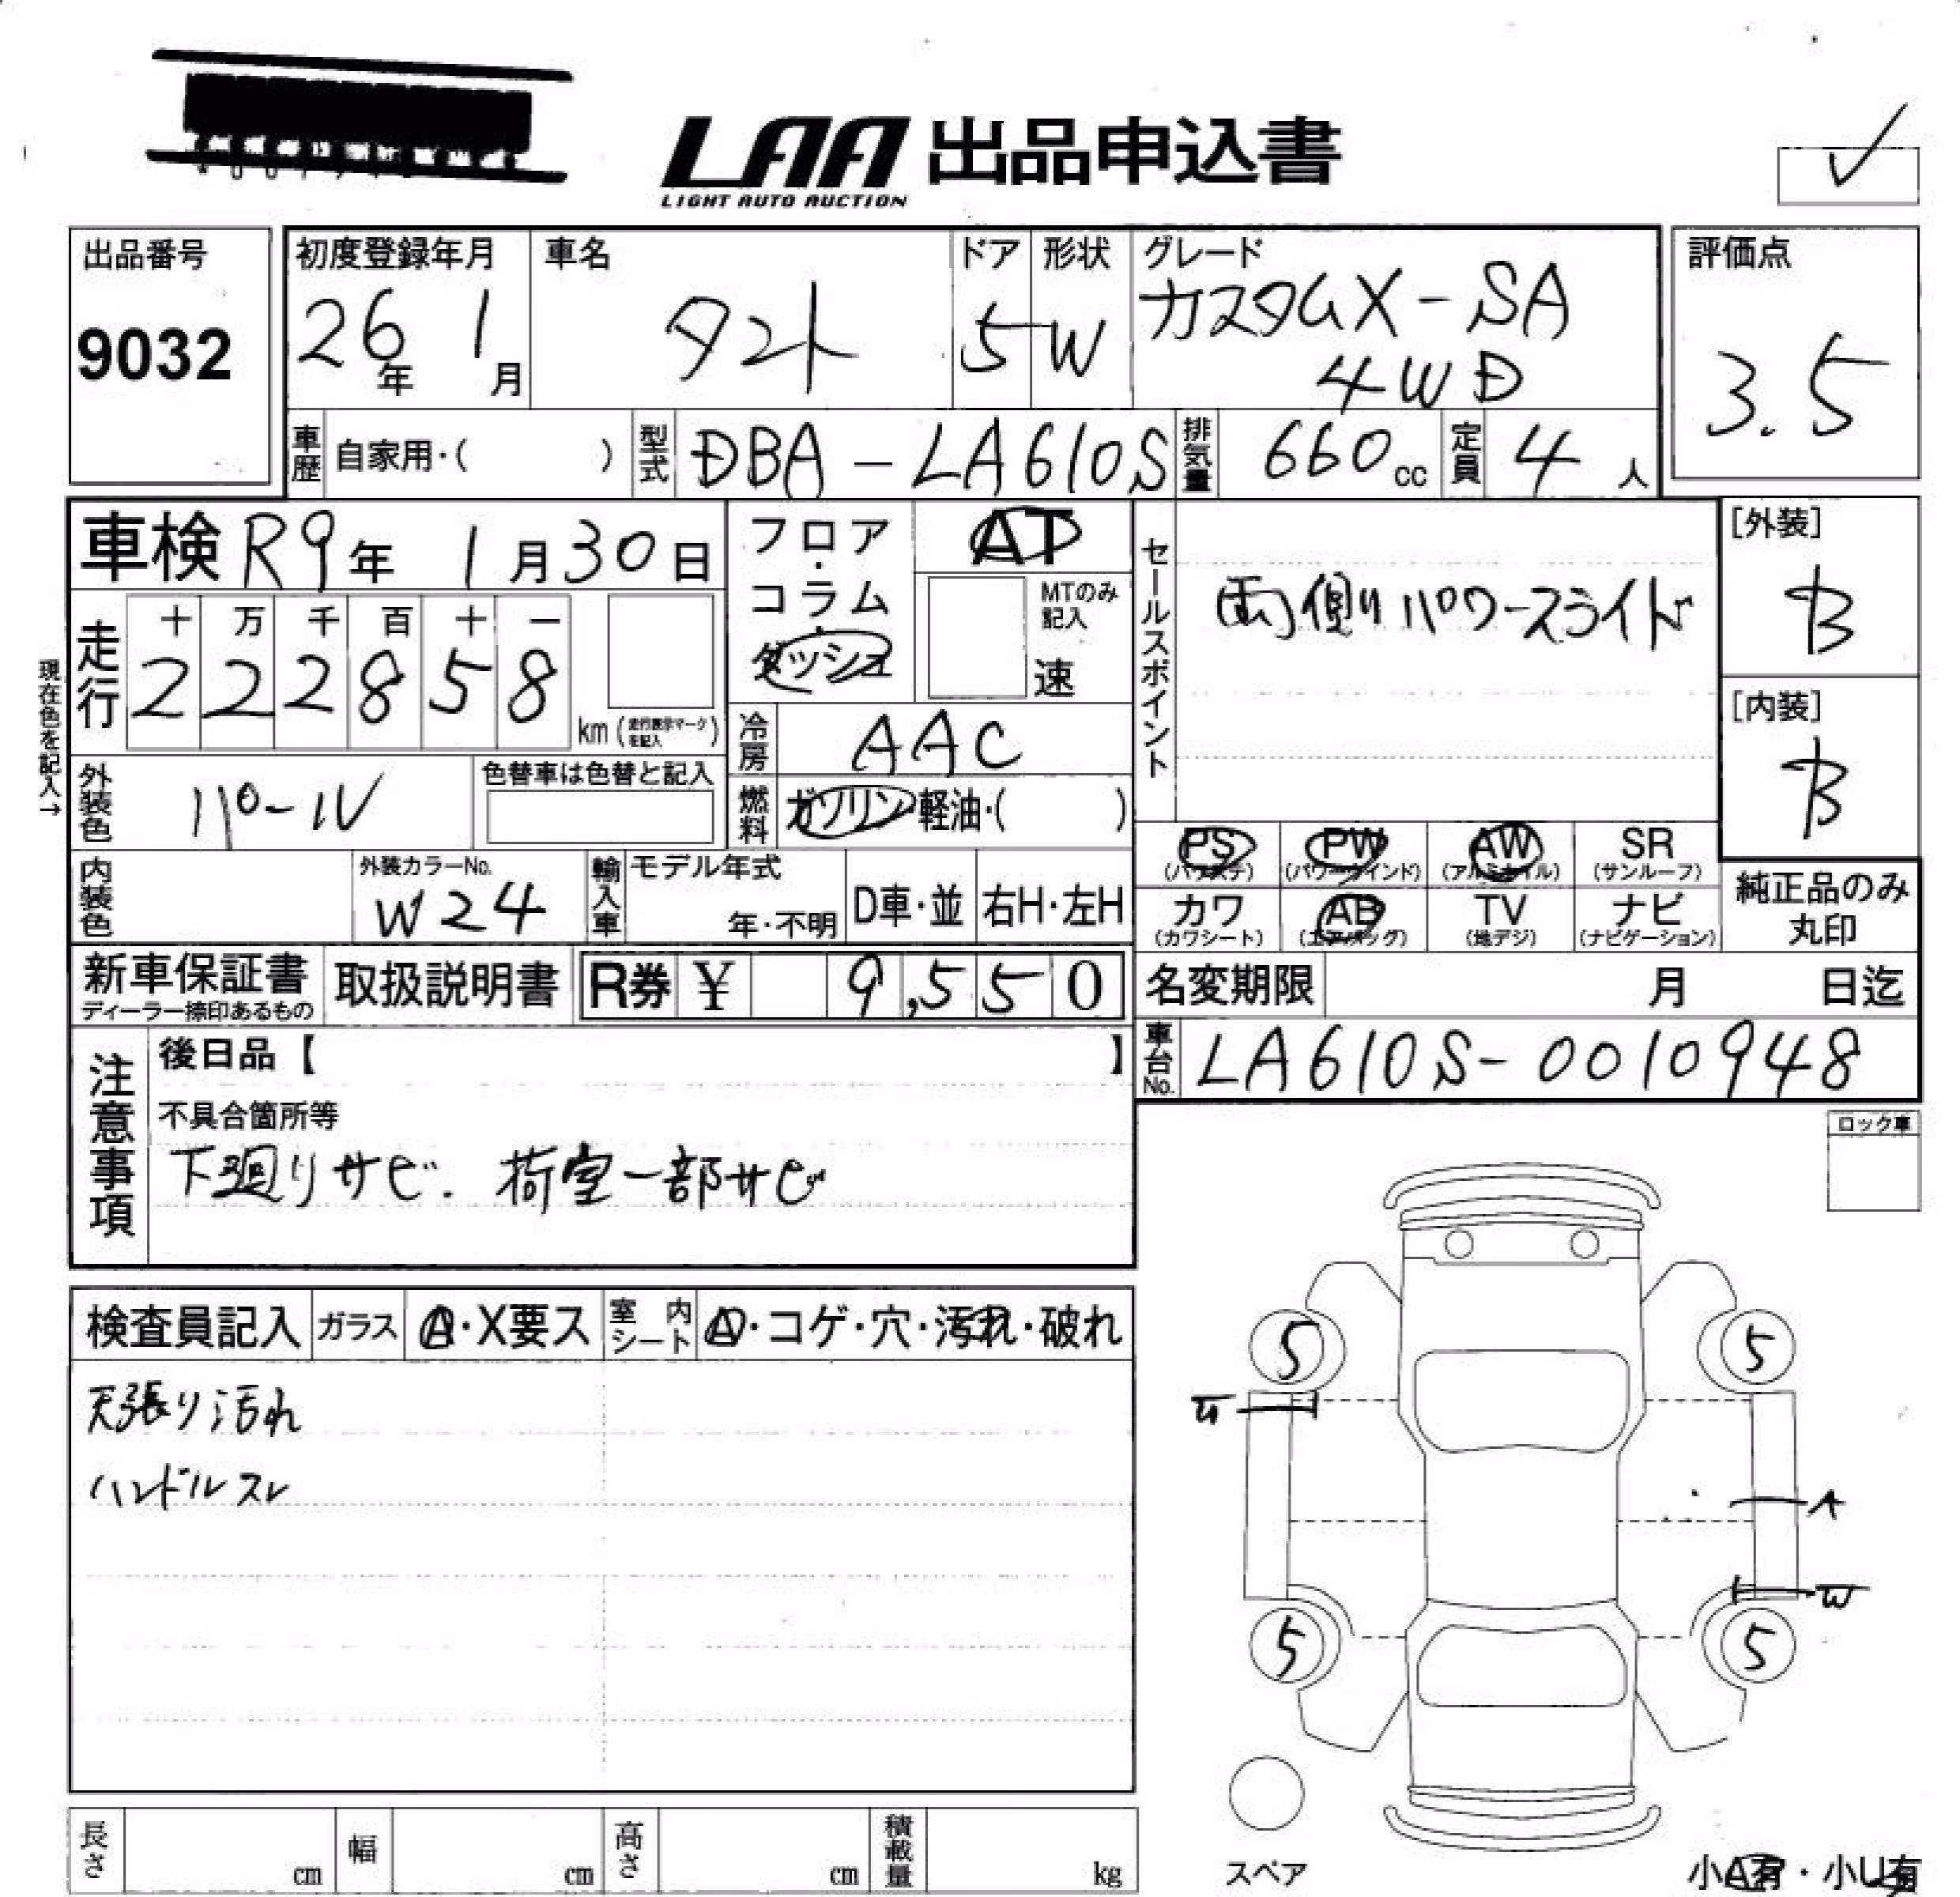 LAA 出品申込書
LIGHT AUTO AUCTION
出品番号
9032
初度登録年月
26年 1月
車名
タント
ドア
5
形状
W
グレード
カスタムX-SA
4WD
評価点
3.5
車歴 自家用・( )
型式 DBA-LA610S
排気量 660cc
定員 4人
車検 R9年 1月30日
現在色を記入→
走行
十 万 千 百 十 一
2 2 2 8 5 8
km (走行表示マークを記入)
フロア・コラム・ダッシュ
AT
MTのみ記入
速
冷房 AAC
燃料 ガソリン・軽油・( )
セールスポイント
両側パワースライド
[外装]
B
[内装]
B
外装色 パール
色替車は色替と記入
内装色
外装カラーNo.
W24
輸入車 モデル年式
年・不明
D車・並
右H・左H
PS
(パワステ)
PW
(パワーウインド)
AW
(アルミホイル)
SR
(サンルーフ)
カワ
(カワシート)
AB
(エアバッグ)
TV
(地デジ)
ナビ
(ナビゲーション)
純正品のみ
丸印
新車保証書
ディーラー捺印あるもの
取扱説明書
R券 ¥ 9,550
名変期限 月 日迄
車台No. LA610S-0010948
注意事項
後日品【 】
不具合箇所等
下廻りサビ. 荷室一部サビ
ロック車
検査員記入
ガラス A・X要ス
室内シート A・コゲ・穴・汚れ・破れ
天張り汚れ
ハンドルスレ
5 5
U
A
W
5 5
スペア
小A有・小U有
長さ cm
幅 cm
高さ cm
積載量 kg